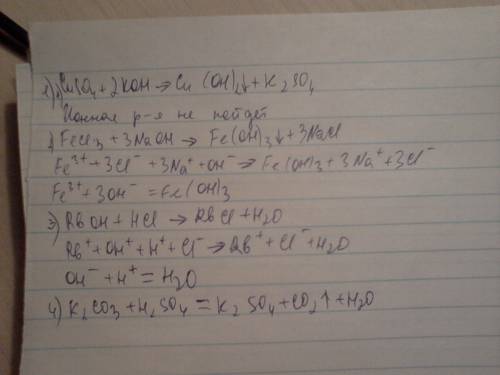 2) CuSO4 + 2KOH → Cu(OH)2↓ + K2SO4
Ионная р-я не пойдет
1) FeCl3 + 3NaOH → Fe(OH)3↓ + 3NaCl
Fe3+ + 3Cl- + 3Na+ + OH- → Fe(OH)3 + 3Na+ + 3Cl-
Fe3+ + 3OH- = Fe(OH)3
3) RbOH + HCl → RbCl + H2O
Rb+ + OH+ + H+ + Cl- → Rb+ + Cl- + H2O
OH- + H+ = H2O
4) K2CO3 + H2SO4 = K2SO4 + CO2↑ + H2O